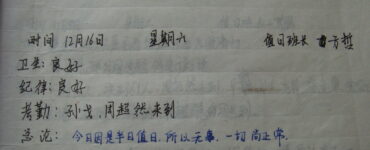 时间 12月16日 星期六 值日班长 方哲
卫生:良好
纪律:良好
考勤:孙戈,周超然未到
总论:今日因是半日值日,所以无事,一切尚正常.